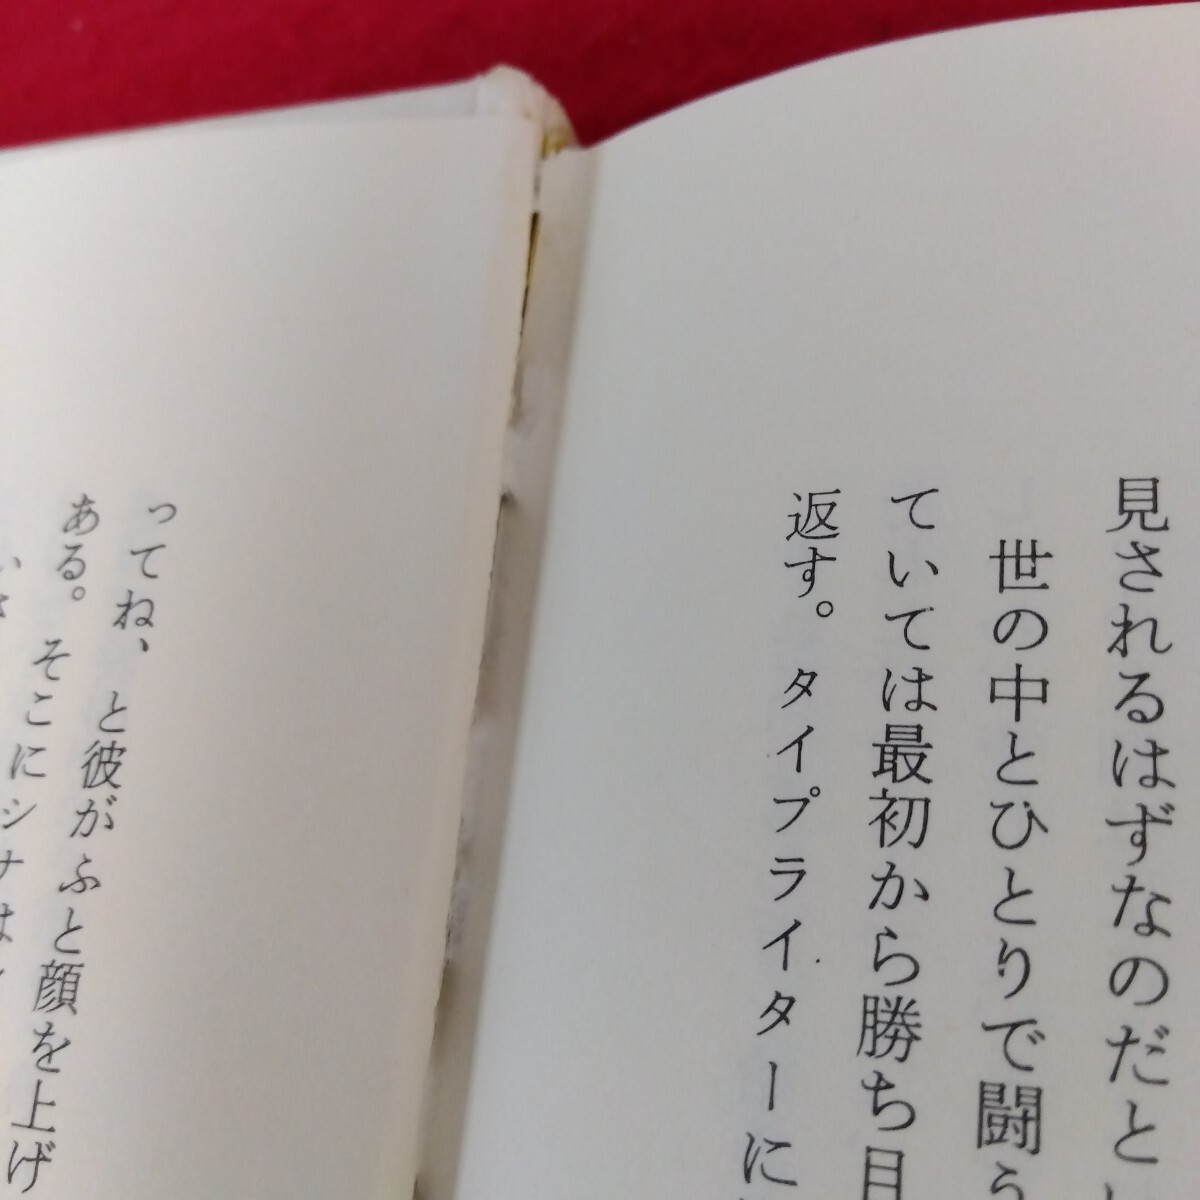 見されるはずなのだと
世の中とひとりで闘う
ていては最初から勝ち目
返す。タイプライターに
ってね、と彼がふと顔を上げ
ある。そこにシナは